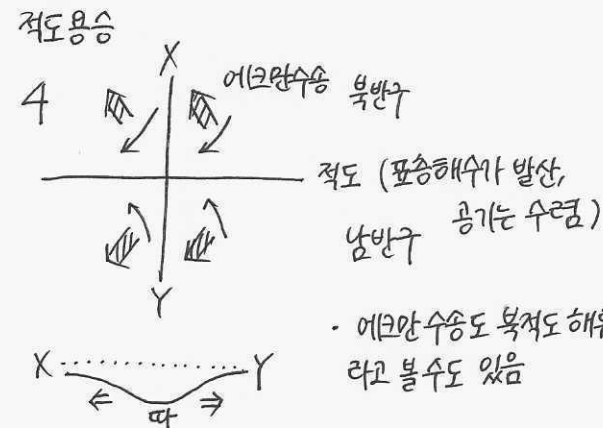 적도용승
4
X
에크만수송 북반구
적도 (표층해수가 발산,
공기는 수렴)
남반구
Y
· 에크만 수송도 북적도 해류
라고 볼 수도 있음
X Y
따